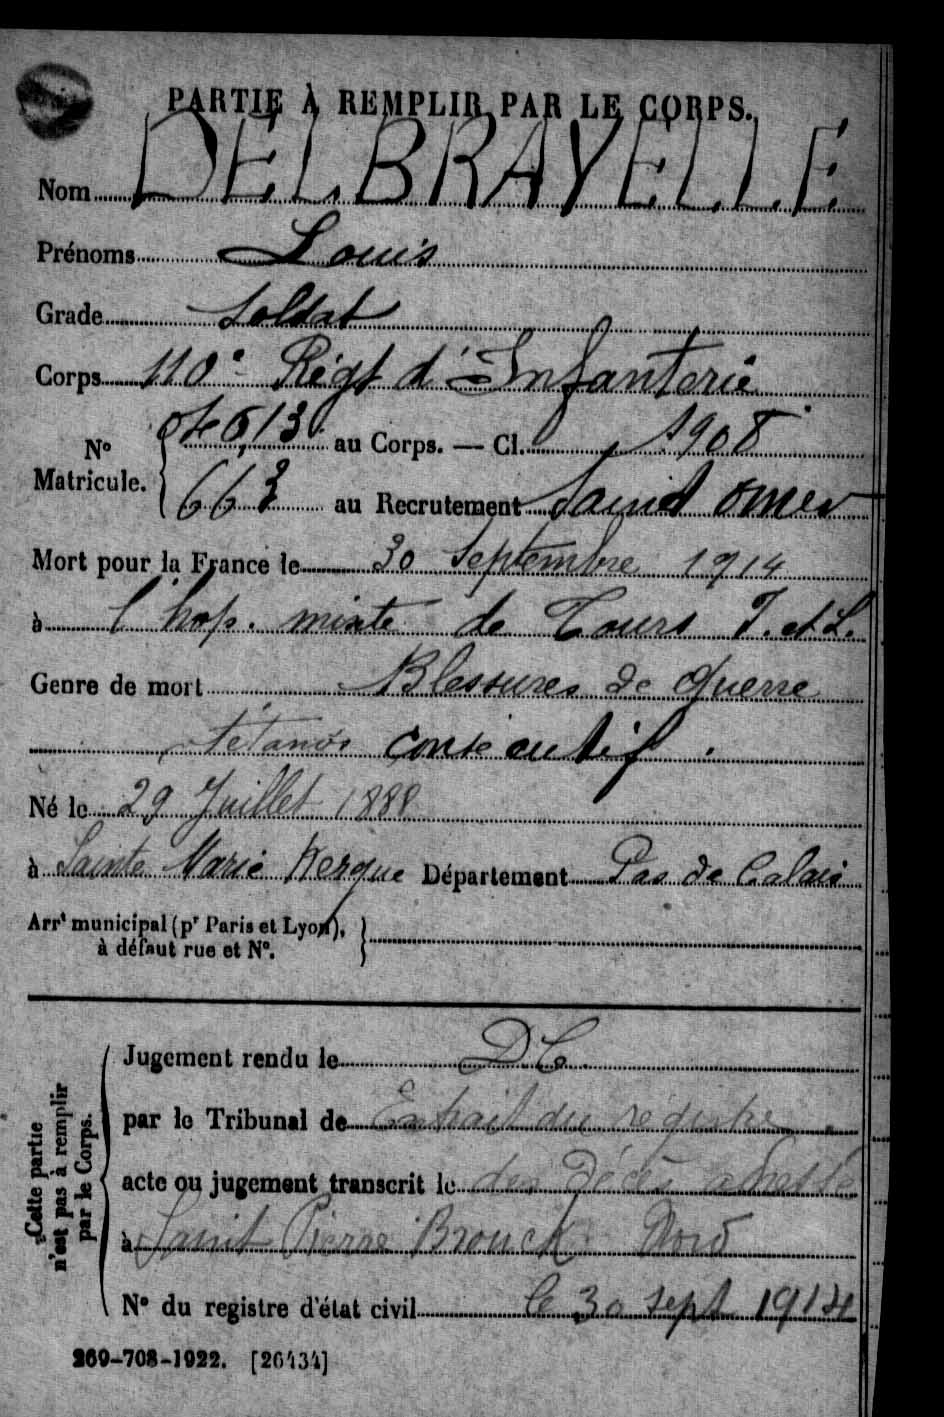 PARTIE À REMPLIR PAR LE CORPS.
Nom DELBRAYELLE
Prénoms Louis
Grade Soldat
Corps 110e Régt d'Infanterie
N° Matricule. 613 au Corps. — Cl. 1908
663 au Recrutement Saint Omer
Mort pour la France le 30 Septembre 1914
à l'hop. mixte de Tours I. et L.
Genre de mort Blessures de guerre
tétanos consécutif.
Né le 29 Juillet 1888
à Sainte Marie Kerque Département Pas de Calais
Arrt municipal (pr Paris et Lyon), à défaut rue et N°.
Cette partie n'est pas à remplir par le Corps.
Jugement rendu le DC.
par le Tribunal de Extrait du registre
acte ou jugement transcrit le des Décès adressé
à Saint Pierre Brouck Nord
N° du registre d'état civil le 30 sept 1914
269-708-1922. [26434]